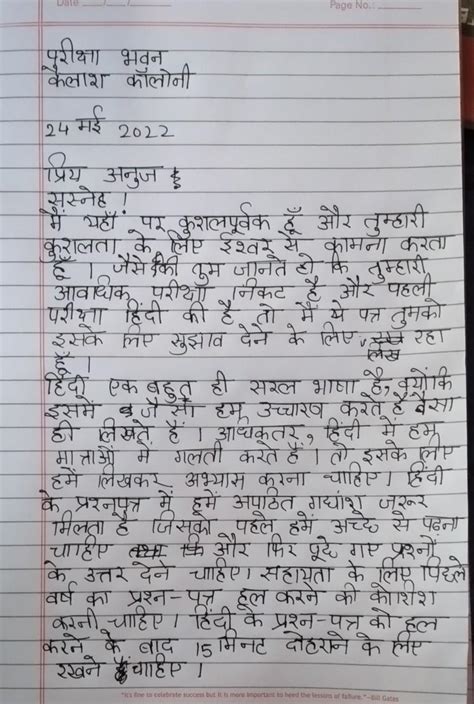 Date
Page No.:
परीक्षा भवन
कैलाश कॉलोनी
24 मई 2022
प्रिय अनुज
सस्नेह !
मैं यहाँ पर कुशलपूर्वक हूँ और तुम्हारी
कुशलता के लिए ईश्वर से कामना करता
हूँ । जैसे की तुम जानते हो कि तुम्हारी
आवधिक परीक्षा निकट है और पहली
परीक्षा हिंदी की है तो मैं ये पत्र तुमको
इसके लिए सुझाव देने के लिए लिख रहा
हूँ ।
हिंदी एक बहुत ही सरल भाषा है, क्योंकि
इसमें जैसा हम उच्चारव करते है वैसा
ही लिखते हैं । आधिकतर, हिंदी में हम
मात्राओं में गलती करते हैं । तो इसके लिए
हमें लिखकर अभ्यास करना चाहिए । हिंदी
के प्रश्नपत्र में हमें अपठित गद्यांश जरूर
मिलता है जिसको पहले हमें अच्छे से पढ़ना
चाहिए और फिर पूछे गए प्रश्नों
के उत्तर देने चाहिए। सहायता के लिए पिछले
वर्ष का प्रश्न-पत्र हल करने की कोशिश
करनी चाहिए । हिंदी के प्रश्न-पत्र को हल
करने के बाद 15 मिनट दोहराने के लिए
रखने चाहिए ।
"It's fine to celebrate success but it is more important to heed the lessons of failure." -Bill Gates